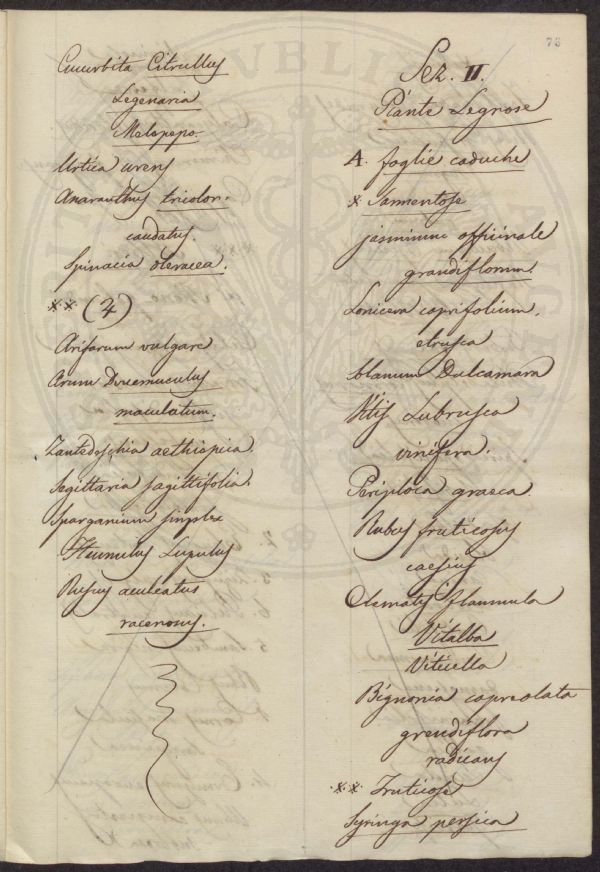 73
Cucurbita Citrullus
Legenaria
Melopepo.
Urtica urens
Amaranthus tricolor.
caudatus.
Spinacia oleracea.
** (4)
Arisarum vulgare
Arum Dracunculus
maculatum.
Zantedeschia aethiopica.
Segittaria sagittifolia.
Sparganium simplex
Humulus Lupulus
Ruscus aculeatus
racemosus.
Sez. II.
Piante Legnose
A. foglie caduche
* Sarmentose
jasminum officinale
grandiflorum.
Lonicera caprifolium.
etrusca
Solanum Dulcamara
Vitis Labrusca
vinifera.
Periploca graeca.
Rubus fruticosus
caesius
Clematis flammula
Vitalba
Viticella
Bignonia capreolata
grandiflora
radicans
** Fruticose
Syringa persica